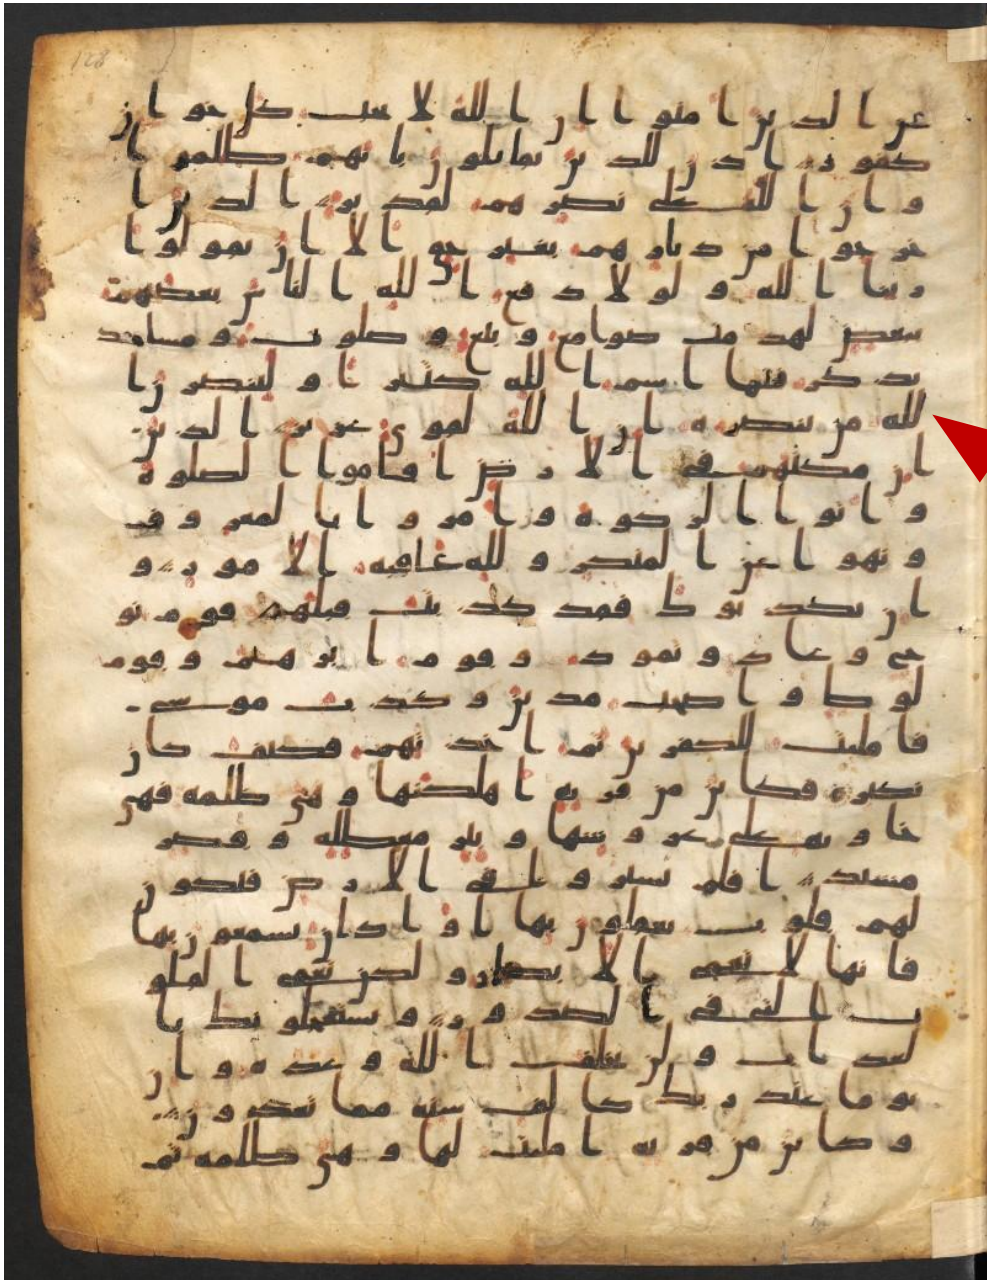 عن الذين امنوا ان الله لا يحب كل خوان
كفور اذن للذين يقاتلون بانهم ظلموا
وان الله على نصرهم لقدير الذين ا
خرجوا من ديارهم بغير حق الا ان يقولوا
ربنا الله ولولا دفع الله الناس بعضهم
ببعض لهدمت صوامع وبيع وصلوت ومساجد
يذكر فيها اسم الله كثيرا ولينصرن ا
لله من ينصره ان الله لقوي عزيز الذين
ان مكنهم في الارض اقاموا الصلوة
واتوا الزكوة وامروا بالمعروف
ونهوا عن المنكر ولله عاقبة الامور و
ان يكذبوك فقد كذبت قبلهم قوم نو
ح وعاد وثمود وقوم ابرهيم وقوم
لوط واصحب مدين وكذب موسى
فامليت للكفرين ثم اخذتهم فكيف كان
نكير فكاين من قرية اهلكنها وهي ظلمة فهي
خاوية على عروشها وبير معطلة وقصر
مشيد افلم يسيروا في الارض فتكون
لهم قلوب يعقلون بها او اذان يسمعون بها
فانها لا تعمى الابصار ولكن تعمى القلو
ب التي في الصدور ويستعجلونك با
لعذاب ولن يخلف الله وعده وان
يوما عند ربك كالف سنة مما تعدون
وكاين من قرية امليت لها وهي ظلمة ثم